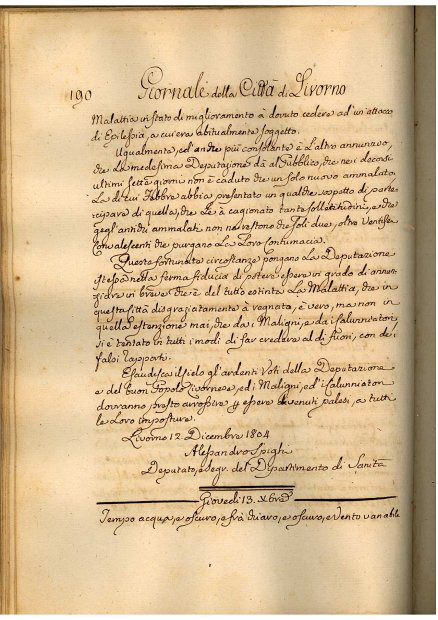 190 Giornale della Città di Livorno
Malattia in stato di miglioramento à dovuto cedere ad un'attacco
di Epilessia, a cui era abitualmente soggetto.
Ugualmente, ed anche più consolante è l'altro annunzio,
che la medesima Deputazione dà al Pubblico, che nei decorsi
ultimi sette giorni non è caduto che un solo nuovo ammalato,
la di cui Febbre abbia presentato un qualche sospetto di parte-
cipare di quella, che ce à cagionato tante sollecitudini, e che
degl'antichi ammalati non ne restono che soli due, oltre Ventisei
Convalescenti che purgano la loro contumacia.
Queste fortunate circostanze pongano la Deputazione
istessa nella ferma fiducia di potere essere in grado di annun-
ziare in breve che è del tutto estinta la Malattia, che in
questa Città disgraziatamente à regnata, è vero, ma non in
quella estenzione mai, che da i Maligni, e da i Calunniatori,
si è tentato in tutti i modi di far credere al di fuori, con de i
falsi rapporti.
Esaudisca il Cielo gl'ardenti Voti della Deputazione
e del buon Popolo Livornese, ed i Maligni, ed i Calunniatori
dovranno presto arrossire p essere divenuti palesi, a tutti
le loro imposture.
Livorno 12. Dicembre 1804
Alessandro Spighi
Deputato, e Segr. del Dipartimento di Sanità
Giovedì 13. Xbre
Tempo acqua, e oscuro, e frà chiaro, e oscuro, e Vento variabile